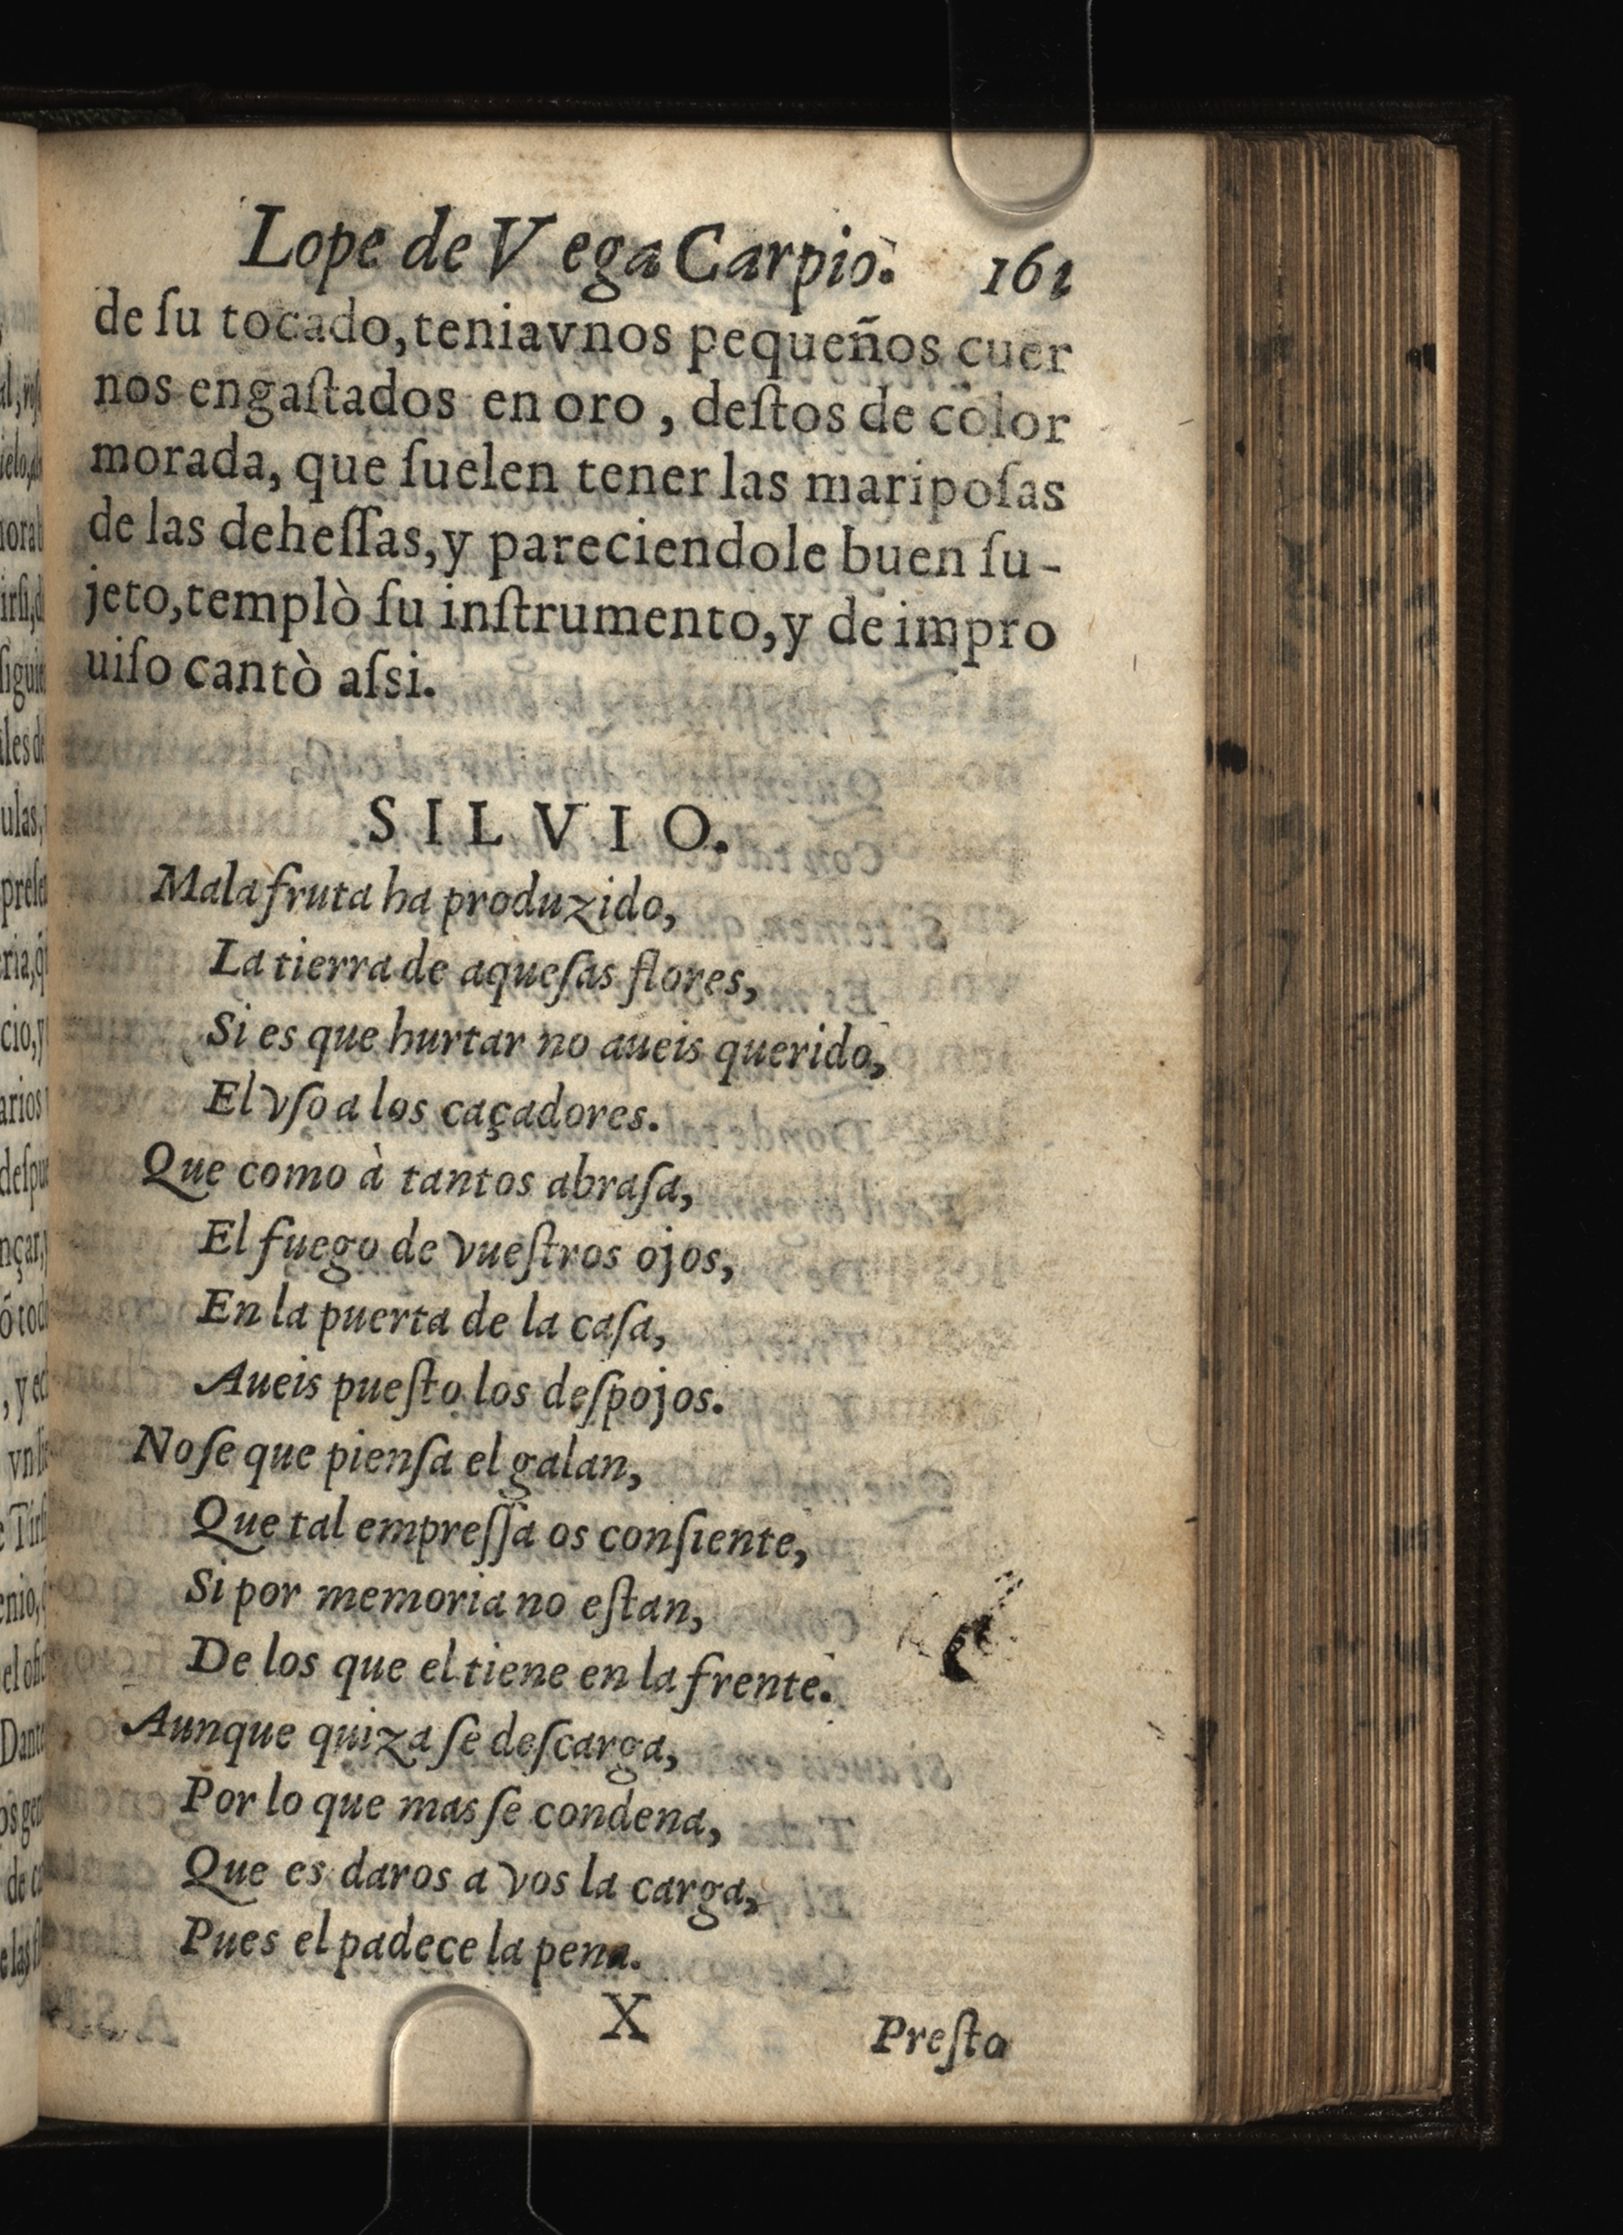 Lope de Vega Carpio. 161
de ſu tocado, tenia vnos pequeños cuer
nos engaſtados en oro, deſtos de color
morada, que ſuelen tener las maripoſas
de las deheſſas, y pareciendole buen ſu-
jeto, templò ſu inſtrumento, y de impro
uiſo cantò aſsi.
SILVIO.
Mala fruta ha produzido,
La tierra de aqueſas flores,
Si es que hurtar no aueis querido,
El vſo a los caçadores.
Que como à tantos abraſa,
El fuego de vueſtros ojos,
En la puerta de la caſa,
Aueis pueſto los deſpojos.
No ſe que pienſa el galan,
Que tal empreſſa os conſiente,
Si por memoria no eſtan,
De los que el tiene en la frente.
Aunque quiza ſe deſcarga,
Por lo que mas ſe condena,
Que es daros a vos la carga,
Pues el padece la pena.
X Preſto